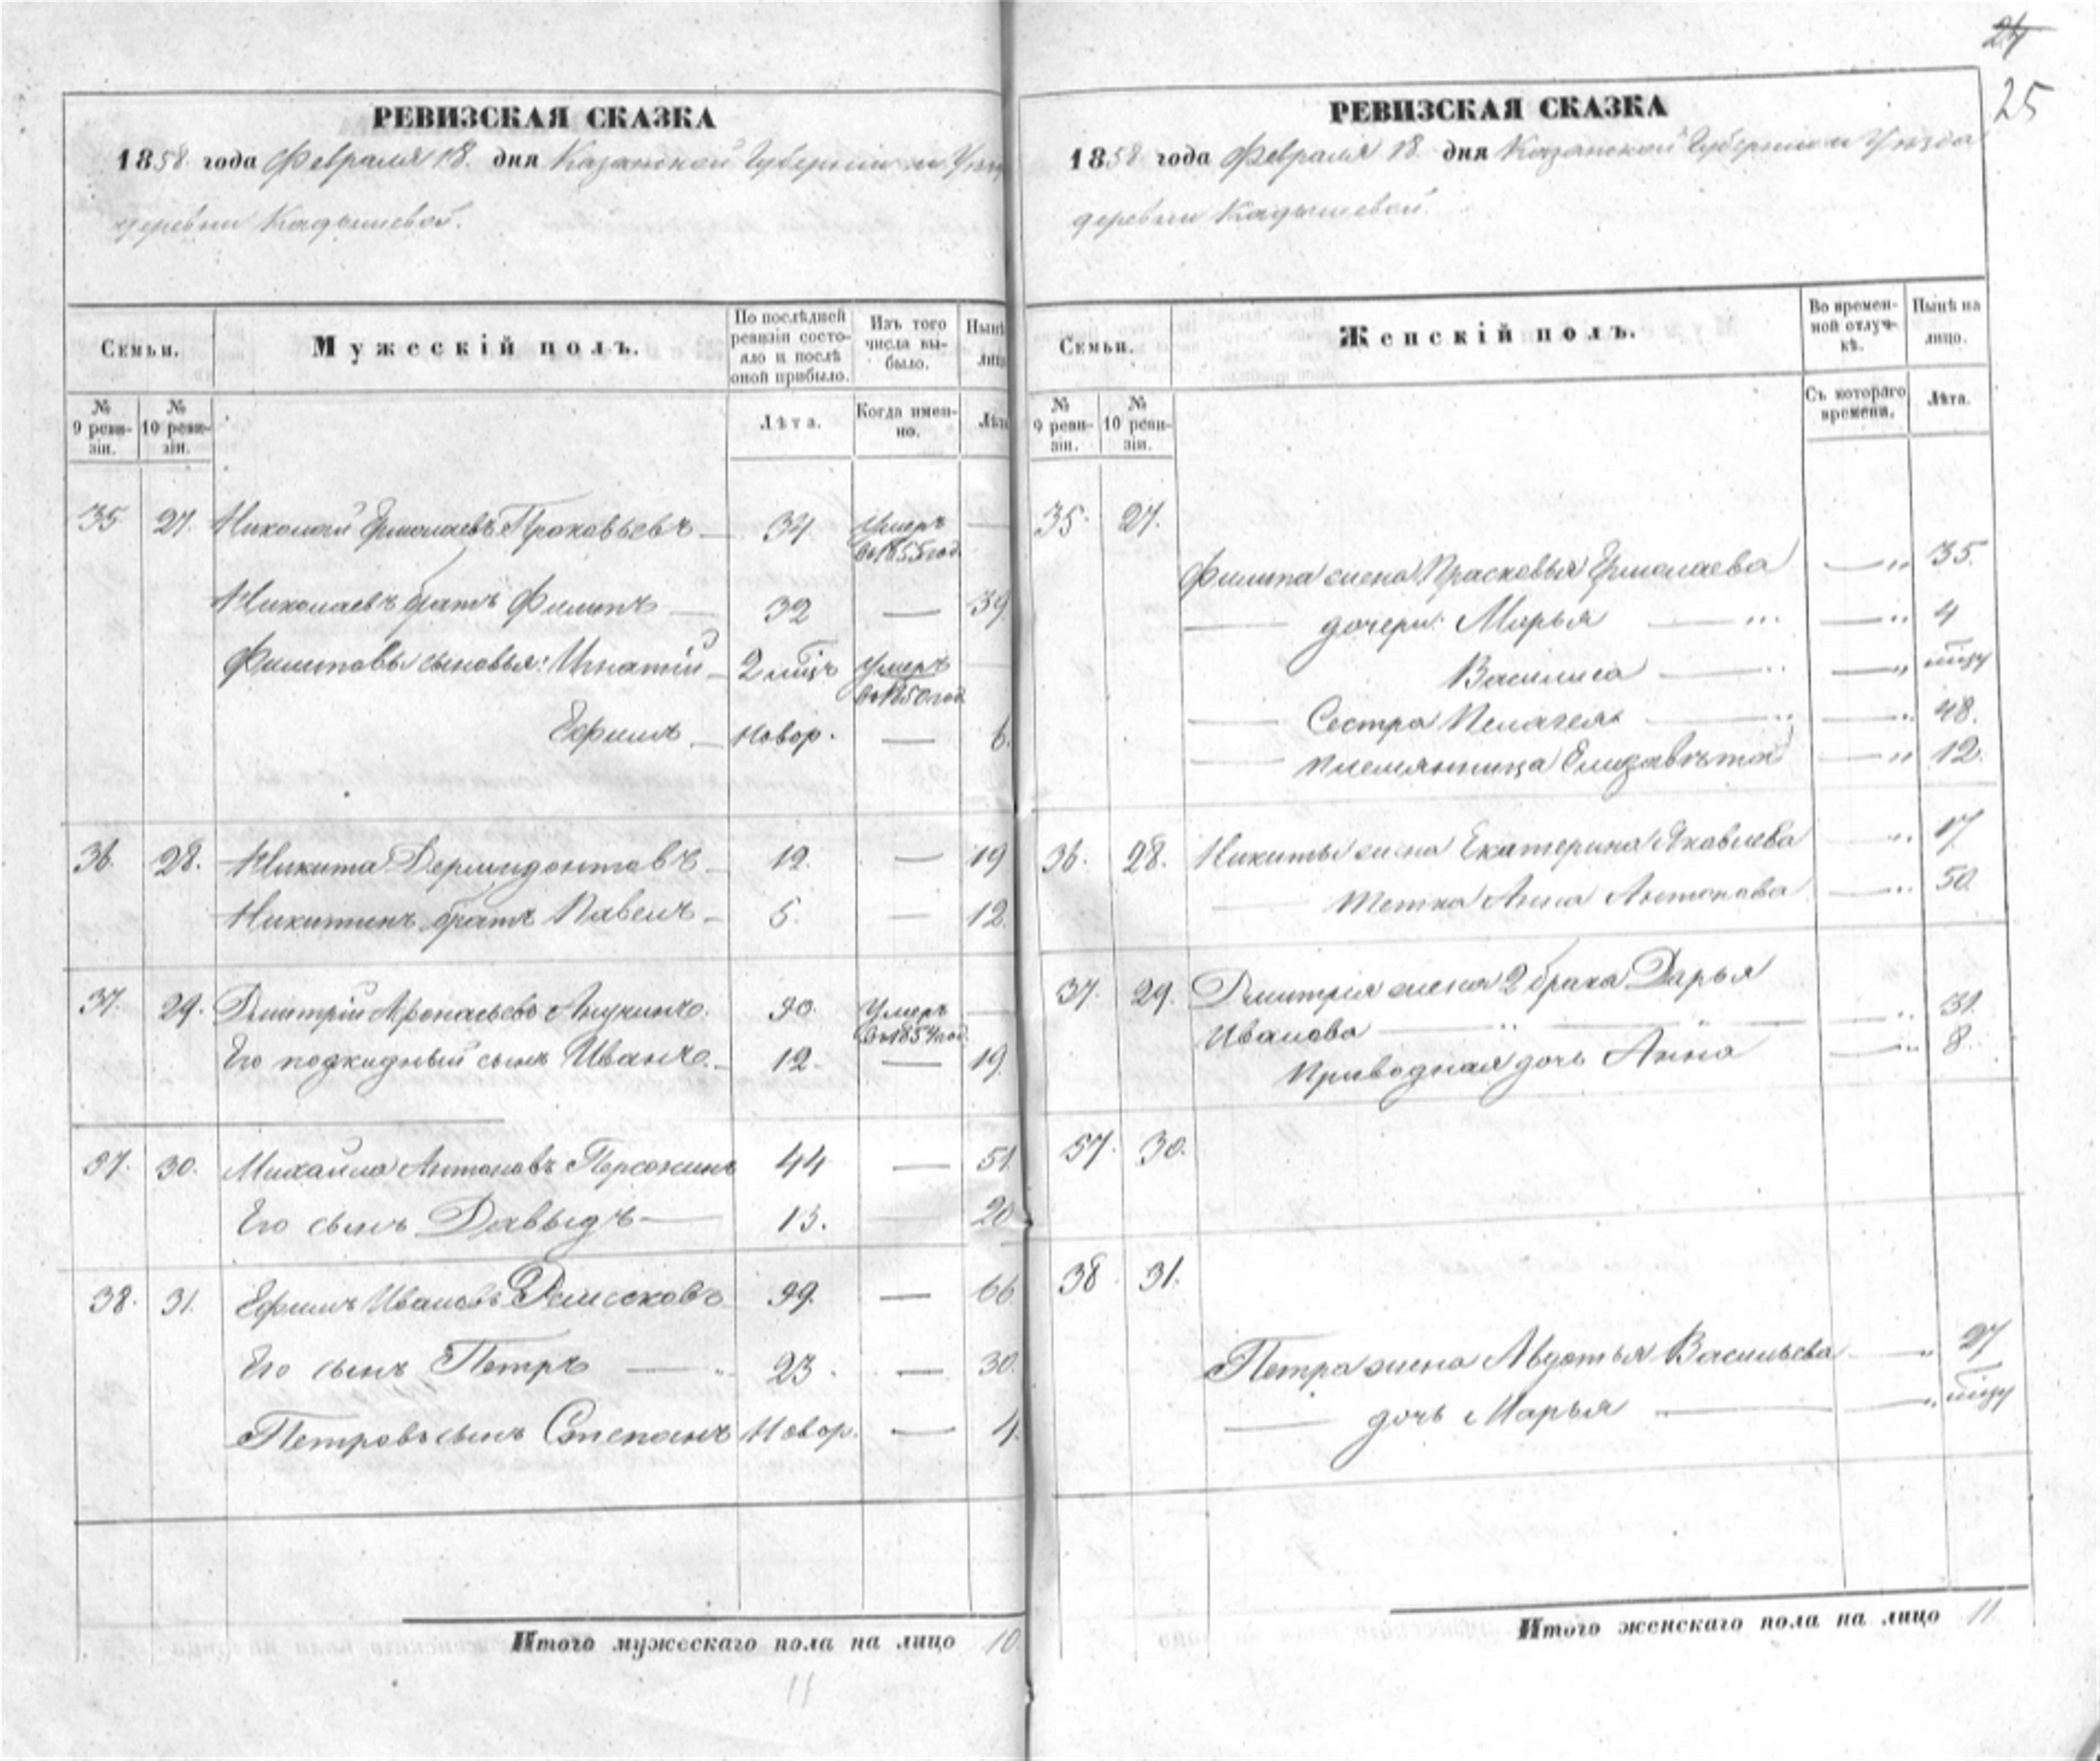 24
25
РЕВИЗСКАЯ СКАЗКА
1858 года Февраля 18. дня Казанской Губерніи и Уѣз
деревни Кадышевой.
Семьи.
Мужескій полъ.
По послѣдней ревизіи состояло и послѣ оной прибыло.
Изъ того числа выбыло.
Нынѣ лицо
№ 9 ревизіи.
№ 10 ревизіи.
Лѣта.
Когда именно.
Лѣта
35 27. Николай Ермолаевъ Прокофьевъ — 34 Умеръ въ 1855 год. —
Николаевъ братъ Филипъ — 32 — 39.
Филиповы сыновья: Игнатій — 2 мѣц Умеръ въ 1850 год.
Ефимъ — Новор. — 6.
36. 28. Никита Дермидонтовъ — 12. — 19
Никитинъ братъ Павелъ — 5. — 12.
37. 29. Дмитрій Афонасьевъ 90. Умеръ въ 1854 год. —
Его подкидный сынъ Иванъ. — 12. — 19.
37. 30. Михайла Антоновъ 44 — 51.
Его сынъ Давыдъ — 13. 20
38. 31. Ефимъ Ивановъ 99. — 66
Его сынъ Петръ — 23. — 30.
Петровъ сынъ Степанъ Новор. — 4.
Итого мужескаго пола на лицо 10.
11
РЕВИЗСКАЯ СКАЗКА
1858 года Февраля 18. дня Казанской Губерніи и Уѣзда
деревни Кадышевой.
Семьи.
Женскій полъ.
Во временной отлучкѣ.
Нынѣ на лицо.
№ 9 ревизіи.
№ 10 ревизіи.
Съ котораго времени.
Лѣта.
35. 27.
Филипа жена Прасковья Ермолаева — 35.
— дочери: Марья — — 4
Василиса — —
— Сестра Пелагея — — 48.
— племянница Елизавѣта — 12.
36. 28. Никиты жена Екатерина Яковлева — 17.
— тетка Анна Антонова — 50.
37. 29. Дмитрія жена 2 брака Дарья
Иванова — — — 31.
Приводная дочь Анна — 8.
37. 30.
38. 31.
Петра жена Авдотья Васильева — 27
— дочь Марья — —
Итого женскаго пола на лицо 11